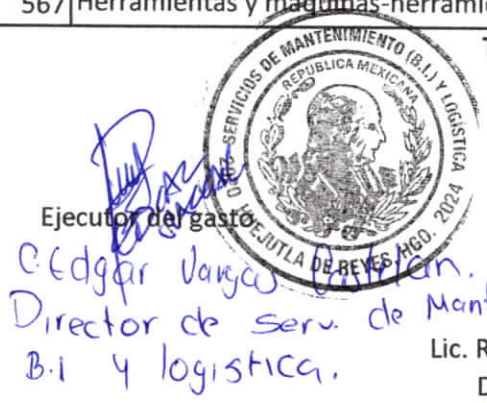 567 Herramientas y maquinas-herrami
SERVICIOS DE MANTENIMIENTO (B.I.) Y LOGÍSTICA
REPUBLICA MEXICANA
HUEJUTLA DE REYES, HGO. 2024
Ejecutor del gasto
C. Edgar Vargas
Director de Serv. de Mant
B.I y logistica.
Lic. R
D